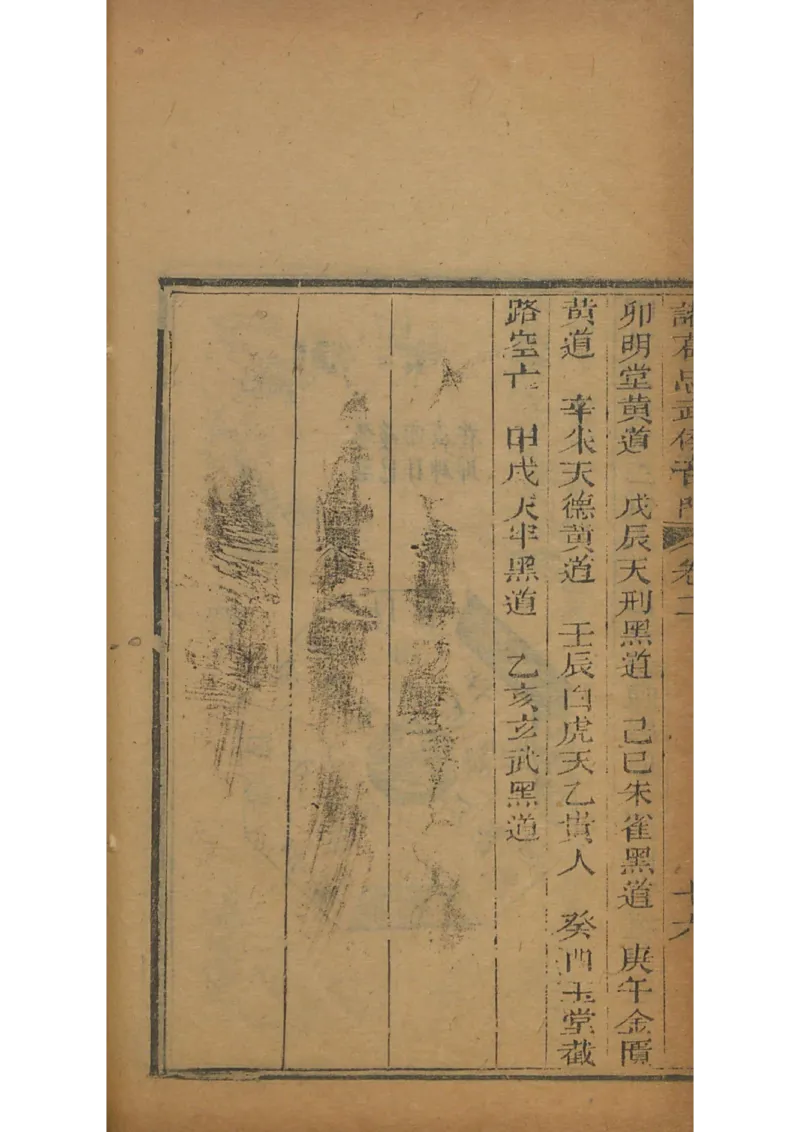 諸葛忠武侯奇門 卷二 十六
卯明堂黄道 戊辰天刑黑道 己巳朱雀黑道 庚午金匱
黄道 辛未天德黄道 壬辰白虎天乙貴人 癸酉玉堂截
路空亡 甲戌天牢黑道 乙亥玄武黑道